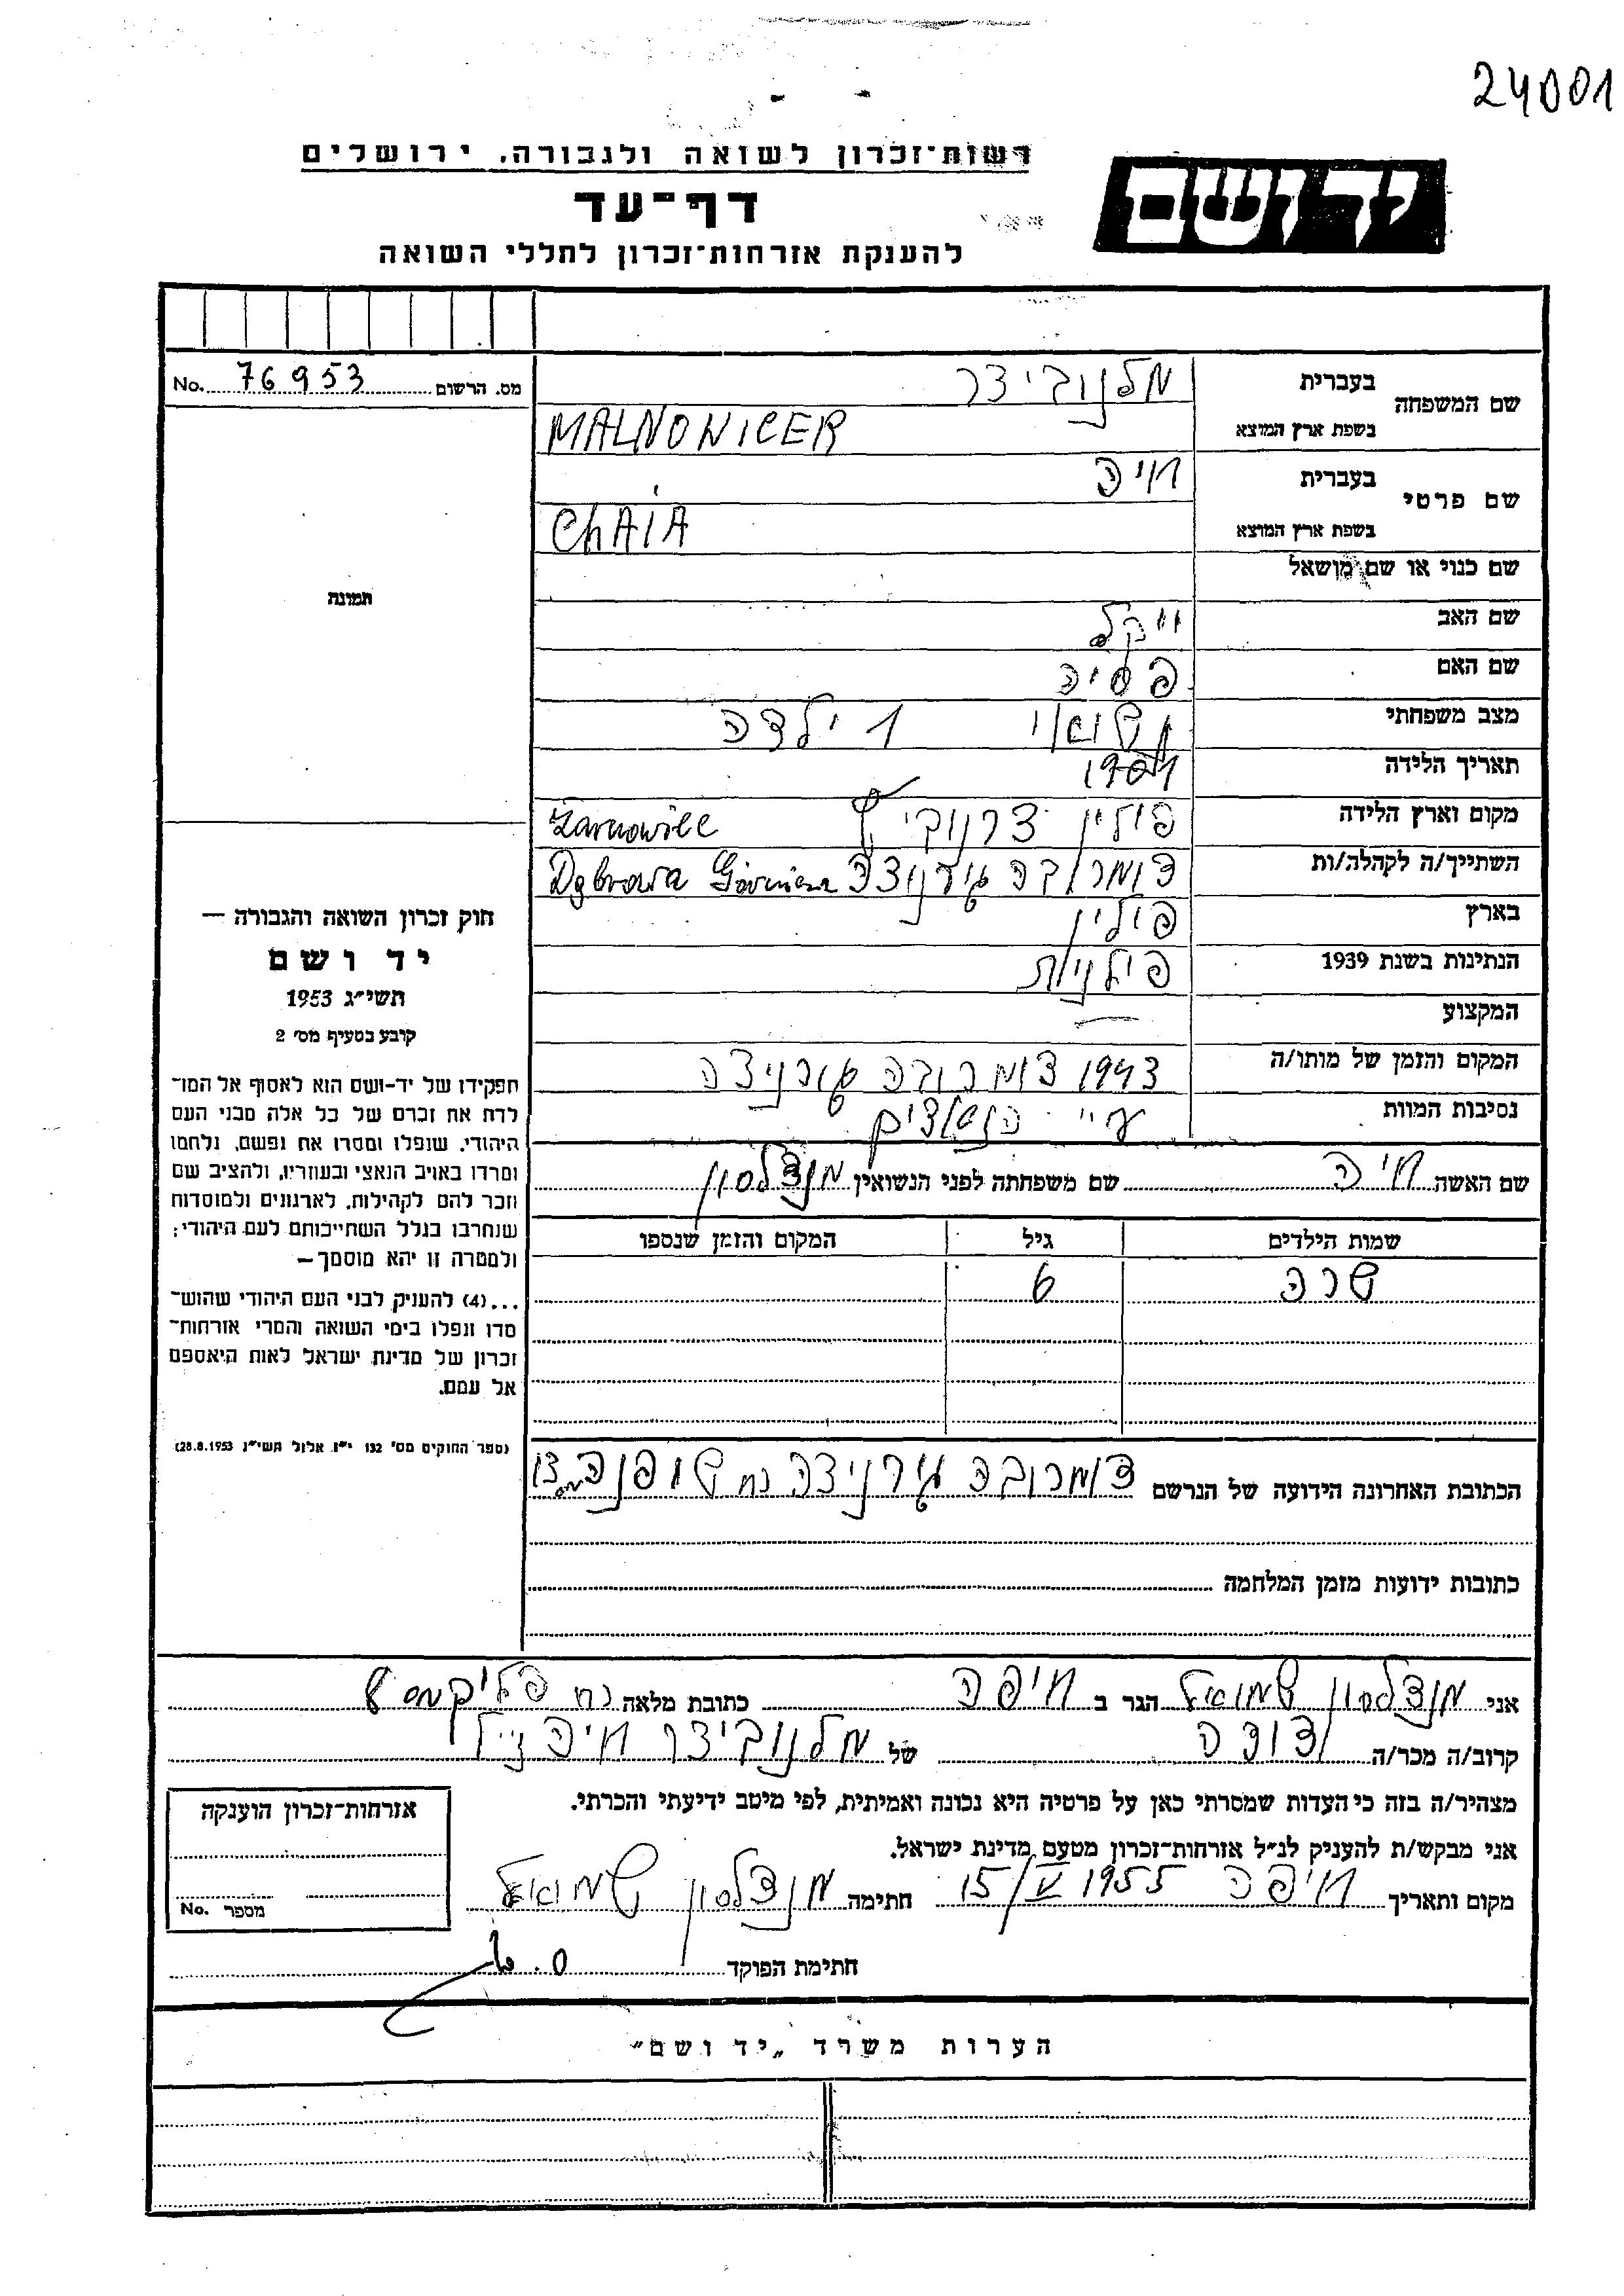 24001
רשות־זכרון לשואה ולגבורה, ירושלים
יד ושם
דף־עד
להענקת אזרחות־זכרון לחללי השואה
מס. הרשום 76953 No.
שם המשפחה
בעברית מלנוביצר
בשפת ארץ המוצא MALNOWICER
שם פרטי
בעברית חיה
בשפת ארץ המוצא ChAIA
שם כנוי או שם מושאל
שם האב יקל
שם האם פסיה
מצב משפחתי נשואי 1 ילדה
תאריך הלידה 1901
מקום וארץ הלידה פולין צרנובי׳ץ Zarnowiec
השתייך/ה לקהלה/ות דומברובה גורניצה Dąbrowa Górnicza
בארץ פולין
הנתינות בשנת 1939 פולנית
המקצוע —
המקום והזמן של מותו/ה 1943 דומברובה גורניצה
נסיבות המוות ע״י הנאצים
שם האשה חיה שם משפחתה לפני הנשואין מנדלסון
שמות הילדים גיל המקום והזמן שנספו
שרה 6
תמונה
חוק זכרון השואה והגבורה —
יד ושם
תשי״ג 1953
קובע בסעיף מס׳ 2
תפקידו של יד-ושם הוא לאסוף אל המו־
לדת את זכרם של כל אלה מבני העם
היהודי, שנפלו ומסרו את נפשם, נלחמו
ומרדו באויב הנאצי ובעוזריו, ולהציב שם
וזכר להם לקהילות, לארגונים ולמוסדות
שנחרבו בגלל השתייכותם לעם היהודי;
ולמטרה זו יהא מוסמך—
...(4) להעניק לבני העם היהודי שהוש־
מדו ונפלו בימי השואה והמרי אזרחות־
זכרון של מדינת ישראל לאות היאספם
אל עמם.
(ספר החוקים מס׳ 132 י״ז אלול תשי״ג 28.8.1953)
הכתובת האחרונה הידועה של הנרשם דומברובה גורניצה רח שופנה
כתובות ידועות מזמן המלחמה
אני מנדלסון שמואל הגר ב חיפה כתובת מלאה רח
קרוב/ה מכר/ה דודה של מלנוביצר חיה
מצהיר/ה בזה כי העדות שמסרתי כאן על פרטיה היא נכונה ואמיתית, לפי מיטב ידיעתי והכרתי.
אני מבקש/ת להעניק לנ״ל אזרחות־זכרון מטעם מדינת ישראל.
מקום ותאריך חיפה 15/V 1955 חתימה מנדלסון שמואל
חתימת הפוקד
אזרחות־זכרון הוענקה
מספר No.
הערות משרד „יד ושם”